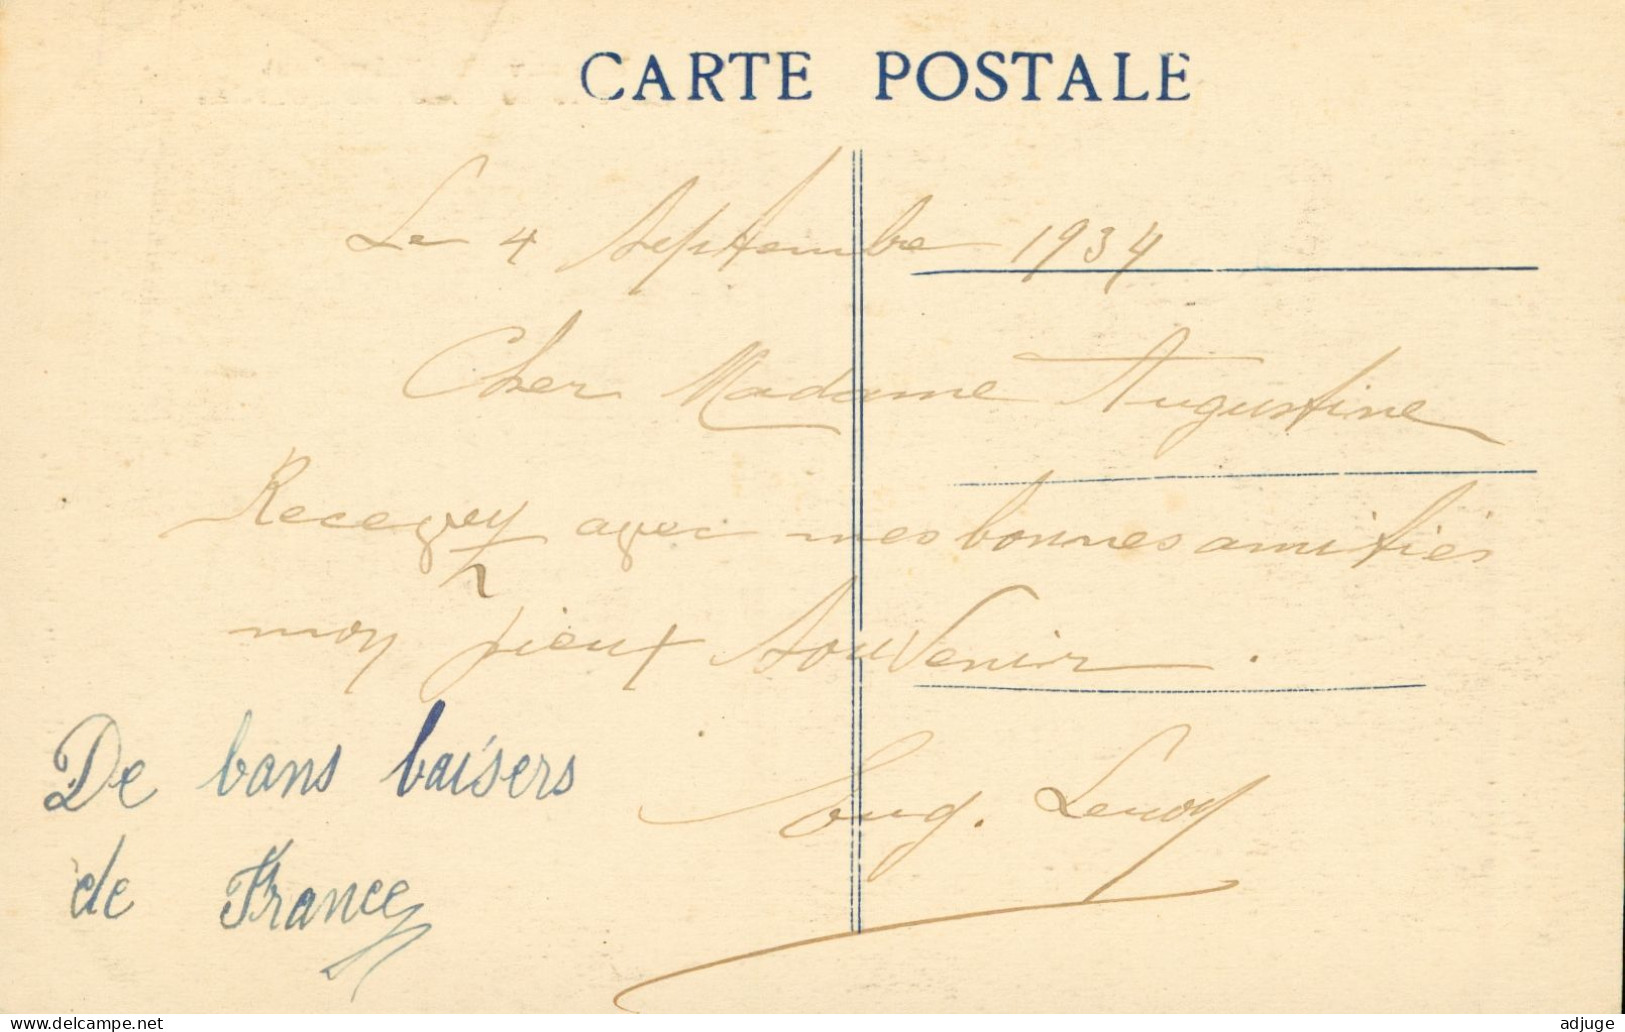 CARTE POSTALE
Le 4 Septembre 1934
Cher Madame Augustine
Recevez avec mes bonnes amitiés
mon pieux Souvenir.
Leroy
De bons baisers
de France
delcampe.net
adjuge